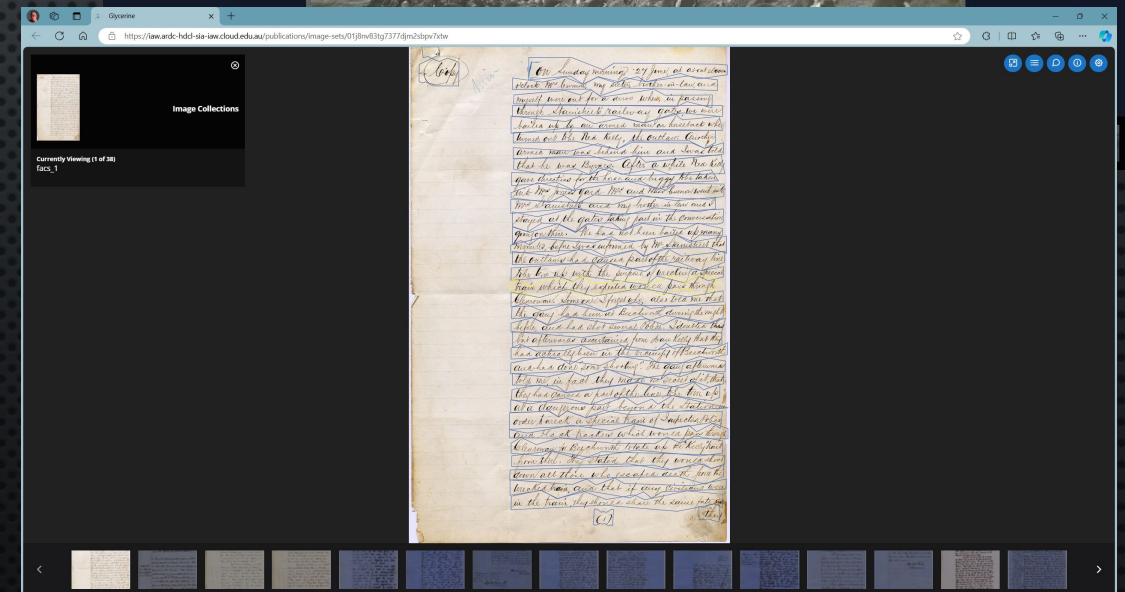 Glycerine
https://iaw.ardc-hdcl-sia-iaw.cloud.edu.au/publications/image-sets/01j8nv83tg7377djm2sbpv7xtw
Image Collections
Currently Viewing (1 of 38)
facs_1
Copy
On Sunday morning 27 June, at about eleven
o'clock Mrs Curnow, my sister, brother-in-law, and
myself were out for a drive when in passing
through Stanistreet's railway gates, we were
bailed up by an armed man on horseback who
turned out to be Ned Kelly, the outlaw. Another
armed man was behind him and I was told
that he was Byrne. After a while Ned Kelly
gave directions for the horse and buggy to be taken
into Mrs Jones's yard. Mrs and Miss Curnow went into
Mrs Stanistreet's and my brother-in-law and I
stayed at the gates taking part in the conversation
going on there. We had not been bailed up many
minutes before I was informed by Mr Stanistreet that
the outlaws had caused part of the railway line
to be torn up with the purpose of wrecking a special
train which they expected would pass through
Glenrowan. Someone, I forget who, also told me that
the gang had been at Beechworth during the night
before, and had shot several Police. I doubted this
but afterwards ascertained from Dan Kelly that they
had actually been in the vicinity of Beechworth
and had done "some shooting". The gang afterwards
told me, in fact they made no secret of it, that
they had caused a part of the line to be torn up
at a dangerous part beyond the Station in
order to wreck a special train of Inspectors, Police
and Black trackers which would pass through
Glenrowan to Beechworth to take up the Kelly trail
from there. They stated that they would shoot
down all those who escaped death from the
wrecked train, and that if any civilians were
in the train, they should share the same fate as
they
(1)